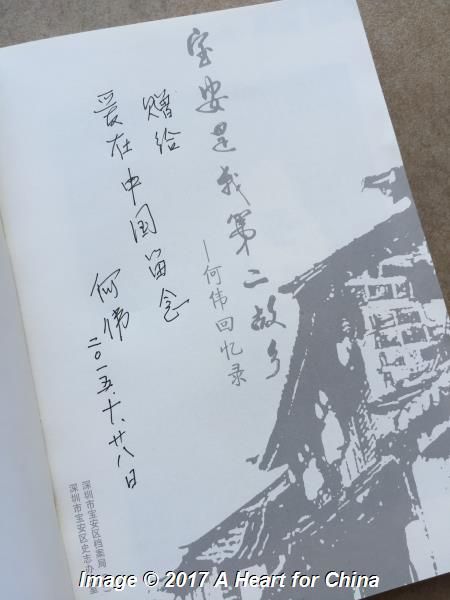 宝安是我第二故乡
—何伟回忆录
赠给
爱在中国留念
何伟
二〇一五、十、廿八日
深圳市宝安区档案局
深圳市宝安区史志办
Image © 2017 A Heart for China